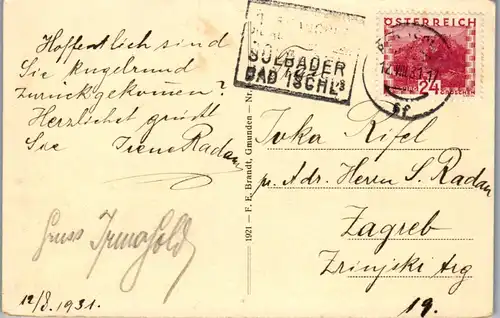 Hoffentlich sind
Sie kugelrund
zurückgekommen?
Herzlichst grüsst
Sie Irene Radan
Gruss Irma Gold
12/8. 1931.
SOLBÄDER
BAD ISCHL'S
1921 - F. E. Brandt, Gmunden - Nr.
ÖSTERREICH
24
GROSCHEN
Ivka Rifel
p. Adr. Herrn S. Radan
Zagreb
Zrinjski trg
19.